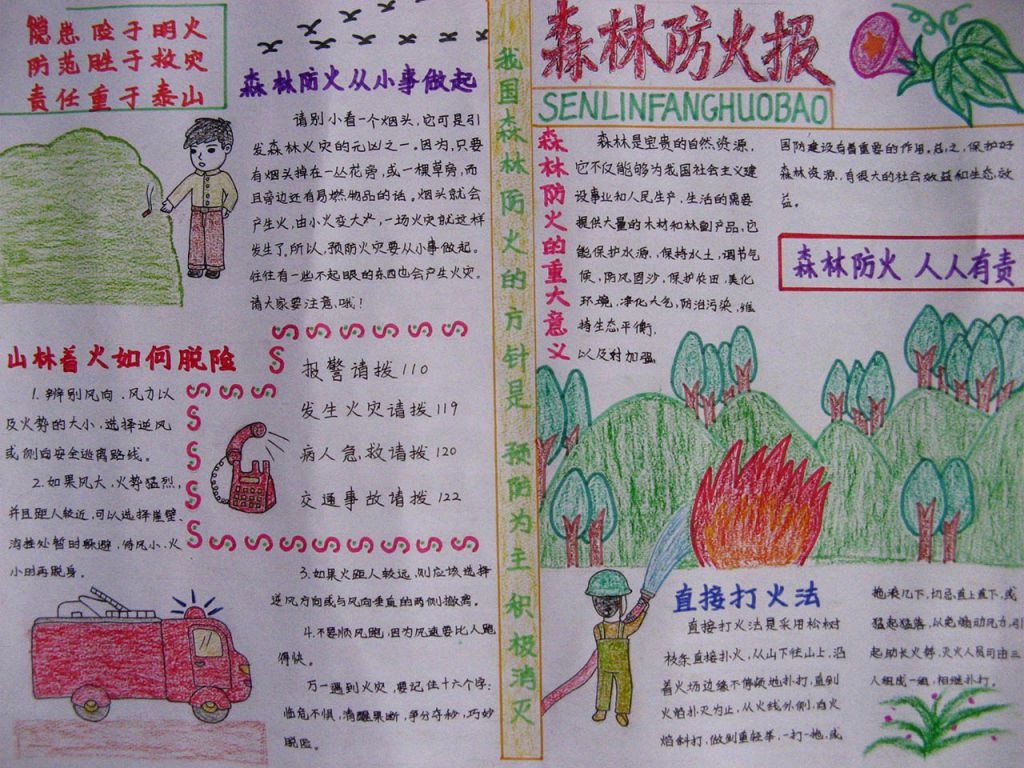 隐患险于明火
防范胜于救灾
责任重于泰山
森林防火从小事做起
请别小看一个烟头,它可是引
发森林火灾的元凶之一。因为,只要
有烟头掉在一丛花旁,或一棵草旁,而
且旁边还有易燃物品的话。烟头就会
产生火,由小火变大火,一场火灾就这样
发生了。所以,预防火灾要从小事做起。
往往有一些不起眼的东西也会产生火灾。
请大家要注意,哦!
山林着火如何脱险
1.辨别风向、风力以
及火势的大小,选择逆风
或侧面安全逃离路线。
2.如果风大,火势猛烈,
并且距人较近,可以选择崖壁、
沟洼处暂时躲避,待风小、火
小时再脱身。
报警请拨110
发生火灾请拨119
病人急救请拨120
交通事故请拨122
3.如果火距人较远,则应该选择
逆风方向或与风向垂直的两侧撤离。
4.不要顺风跑,因为风速要比人跑
得快。
万一遇到火灾,要记住十六个字:
临危不惧,清醒果断,争分夺秒,巧妙
脱险。
我国森林防火的方针是 预防为主 积极消灭
森林防火报
SENLINFANGHUOBAO
森林防火的重大意义
森林是宝贵的自然资源,
它不仅能够为我国社会主义建
设事业和人民生产、生活的需要
提供大量的木材和林副产品,它
能保护水源、保持水土,调节气
候,防风固沙,保护农田,美化
环境,净化大气,防治污染,维
持生态平衡,
以及对加强
国防建设有着重要的作用。总之,保护好
森林资源,有很大的社会效益和生态效
益。
森林防火 人人有责
直接打火法
直接打火法是采用松树
枝条直接扑火,从山下往山上,沿
着火场边缘不停顿地扑打,直到
火焰扑灭为止,从火线外侧,向火
焰斜打,做到重轻举,一打一拖,或
拖滚几下,切忌直上直下,或
猛起猛落,以免煽动风力,引
起助长火势,灭火人员可由三
人组成一组,相继扑打。